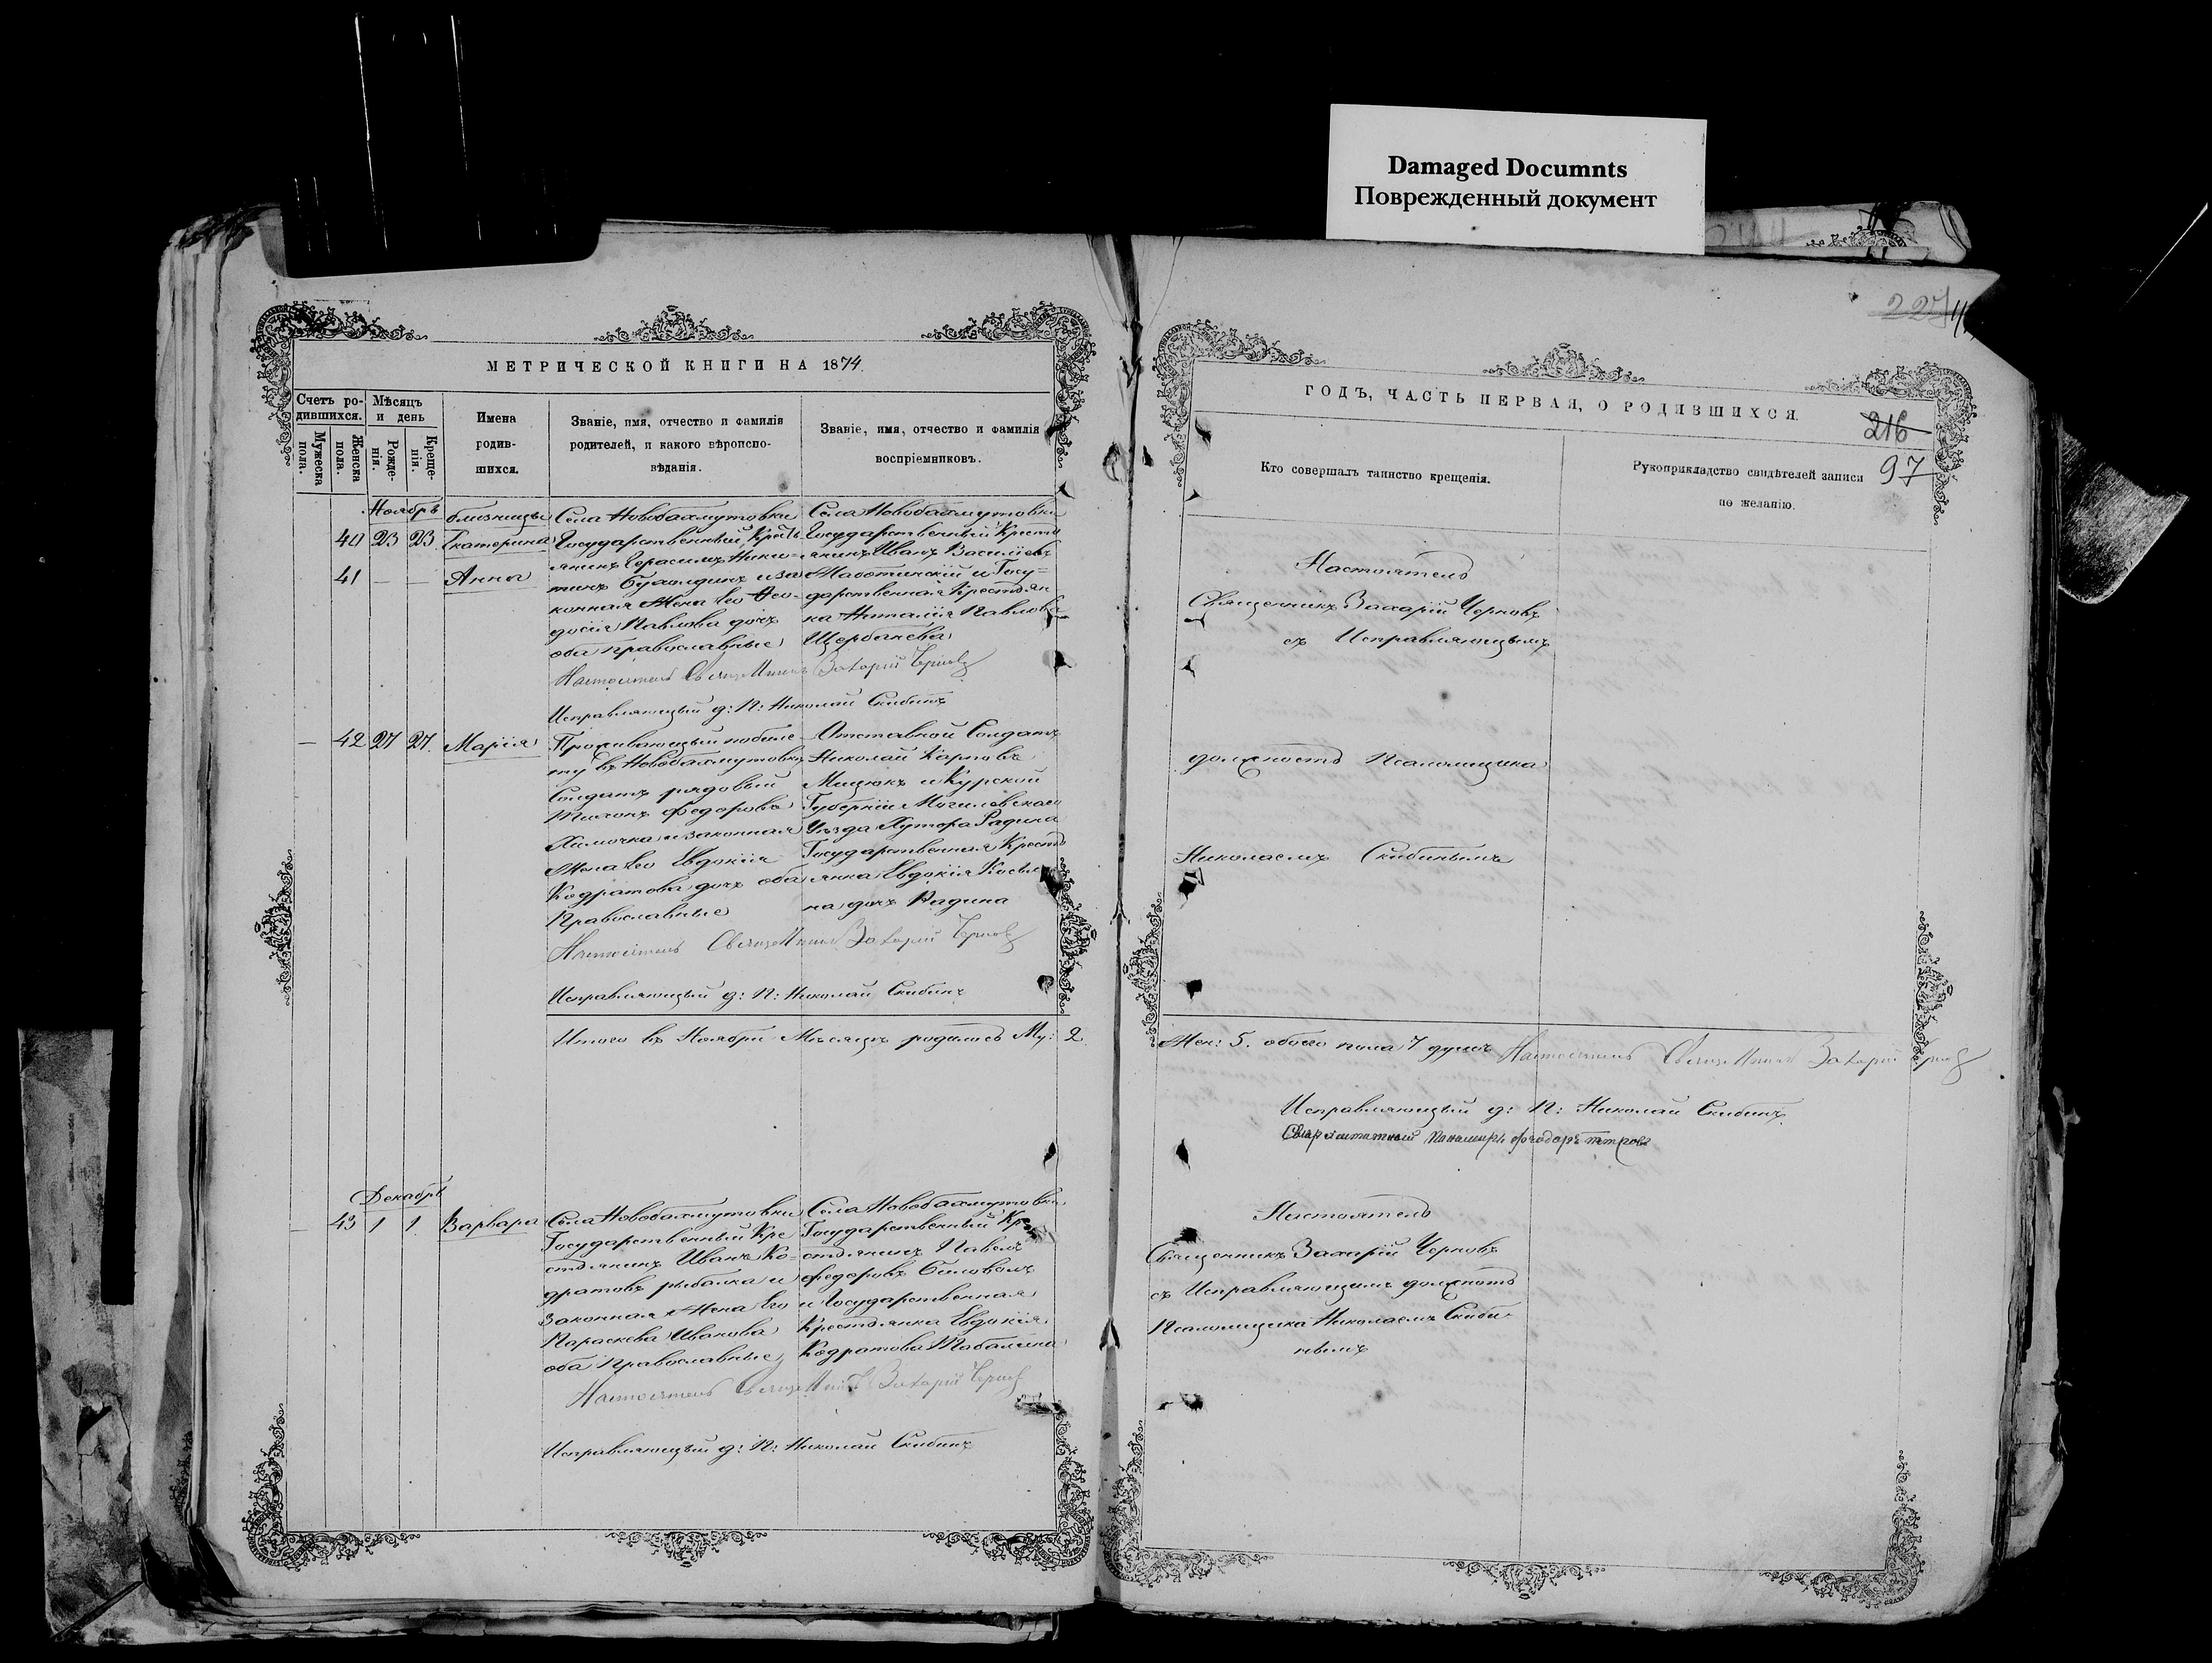 Damaged Documnts
Поврежденный документ
МЕТРИЧЕСКОЙ КНИГИ НА 1874.
Счетъ ро-
дившихся.
Мужеска
пола.
Женска
пола.
Мѣсяцъ
и день
Рожде-
нія.
Креще-
нія.
Имена
родив-
шихся.
Званіе, имя, отчество и фамилія
родителей, и какого вѣроиспо-
вѣданія.
Званіе, имя, отчество и фамилія
воспріемниковъ.
Ноябрь
близницы
40 23 23 Екатерина
41 — — Анна
Села Новобахмутовки
Государственный Кресть
янинъ Герасимъ Ники-
тинъ и за
конная Жена Его Ѳео-
досія Павлова дочь
оба православные
Села Новобахмутовки
Государственный Кресть
янинъ Иванъ Васильевъ
и Госу=
дарственная Крестьян
ка Наталія Павлова
Щербачева
Настоятель Священникъ Захарій Черновъ
Исправляющій д: П: Николай Скибинъ
— 42 27 27. Марія
Проживающій по биле
ту въ Новобахмутовки
Солдатъ рядовый
Тихонъ Федоровъ
и законная
Жена Его Евдокія
Кодратова дочь оба
Православные
Отставной Солдатъ
Николай Карповъ
Мицюкъ и Курской
Губерніи
Уѣзда Хутора Радина
Государственная Кресть
янка Евдокія
на дочь Радина
Настоятель Священникъ Захарій Черновъ
Исправляющій д: П: Николай Скибинъ
Итого въ Ноябри Мѣсяцъ родилось Му: 2
Декабрь
— 43 1 1. Варвара
Села Новобахмутовки
Государственный Кре
стьянинъ Иванъ Ко-
дратовъ рыбалка и
законная Жена Его
Параскева Иванова
оба Православные
Села Новобахмутовки
Государственный Кре
стьянинъ Павелъ
Федоровъ Биловолъ
и Государственная
Крестьянка Евдокія
Кодратова
Настоятель Священникъ Захарій Черновъ
Исправляющій д: П: Николай Скибинъ
227
ГОДЪ, ЧАСТЬ ПЕРВАЯ, О РОДИВШИХСЯ.
216
97
Кто совершалъ таинство крещенія.
Рукоприкладство свидѣтелей записи
по желанію.
Настоятель
Священникъ Захарій Черновъ
съ Исправляющимъ
должность Псаломщика
Николаемъ Скибинымъ
Жен: 5. обоего пола 7 душъ Настоятель Священникъ Захарій Черновъ
Исправляющій д: П: Николай Скибинъ
Сверхштатный Пономарь Феодоръ Петровъ
Настоятель
Священникъ Захарій Черновъ
съ Исправляющимъ должность
Псаломщика Николаемъ Скиби-
нымъ